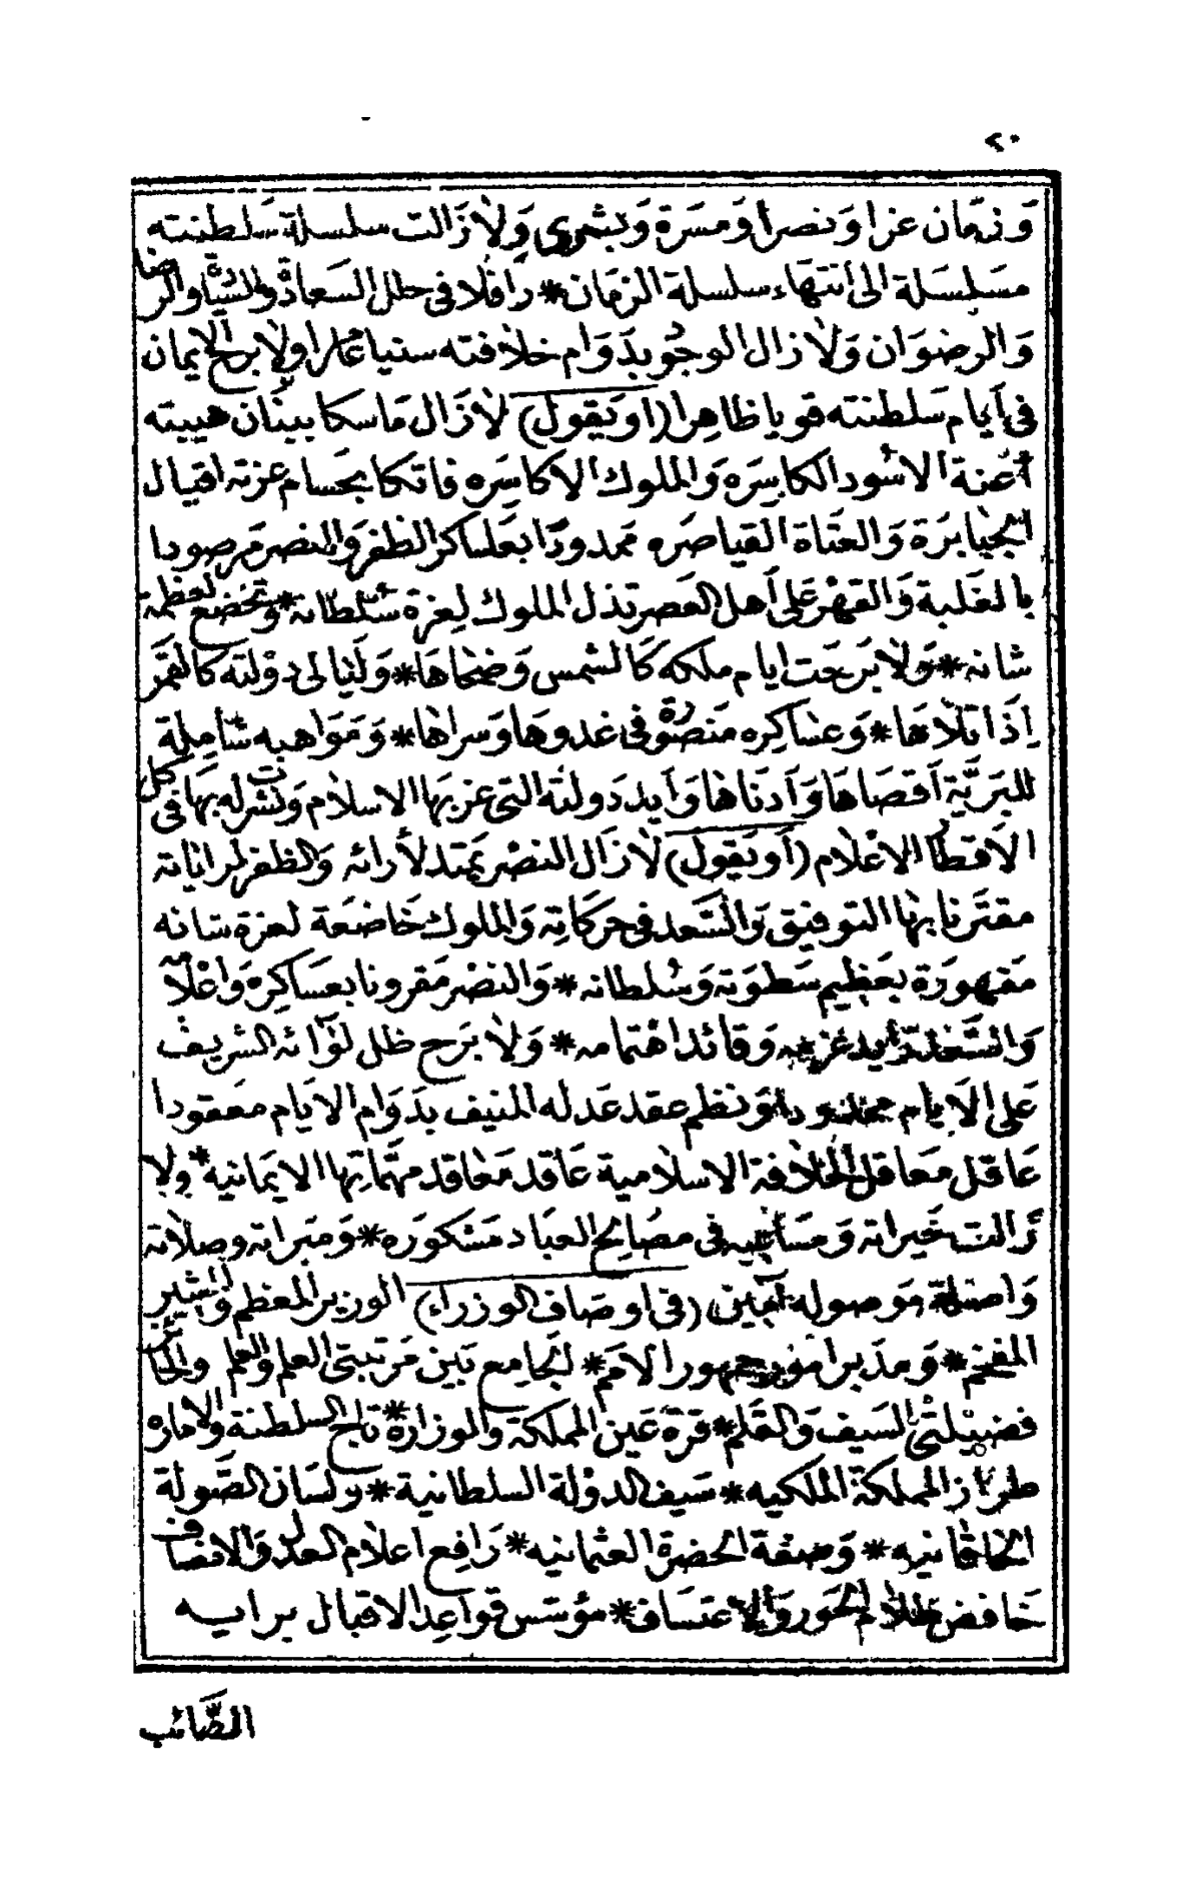 ٢٠
وَفي زمَان عزا وَنصرا وَمسَرة وَبشرى وَلاٰ زَالت سلسلة سَلطنته
مسَلسَلة الى انتهَاء سلسلة الزمَان * رَافلا فى حلل السَعادة والسناء والرضا
وَالرضوَان وَلاٰ زال الوجود بدَوَام خلاٰفته سنيا عَامرا ولاٰ برح الايمان
فى اَيام سَلطنته قويا ظاهِرا (او يَقول) لاٰ زَال مَاسكا ببنَان هيبته
أعنة الاسُود الكاسِرَه وَالملوك الاكاسِرَه فاتكا بحَسام عزته اقيال
الجبَابرَة وَالعتَاة القياصَره ممدودًا بعسَاكر الظفر وَالنصر مَرصودا
بالغَلبة وَالقهْر عَلى اَهل العَصر تذل الملوك لِعزة سُلطانه * وتخضع لعظمة
شانه * وَلاٰ برَحَت ايام ملكه كَالشمس وَضحَاهَا * وَليَالى دوْلته كالقمَر
اِذَا تلاٰهَا * وَعسَاكِره مَنصوُرة فى غدوهَا وَسراهَا * وَمَوَاهبه شامِلة
للبَريَّة اَقصَاهَا وَاَدنَاهَا وَاَيد دَولته التى عز بهَا الاسلاٰم وَنشرت له بهَا فى كل
الاَقطار الاعْلام (اَو يَقول) لاٰ زَال النصْر يمتد لأرائه وَالظفر لراياته
مقتَرنا بهَا التوفيق وَالسَّعد فى حركَاتِه وَالملوك خَاضعَة لعزة شانه
مَقهورَة بعَظيم سَطوَته وَسُلطانه * وَالنصْر مَقرونا بعَسَاكره وَاعْلاٰمه
وَقائد اهْتمامه * وَلاٰ بَرح ظل لوَآئه الشريف
عَلى الاَيام ممدودا وَنظم عقد عَدله المنيف بدَوَام الاَيام مَعقودا
عَاقل مَعاقل الخلاٰفة الاسلاٰمية عَاقد مَعَاقد مهمَّاتِها الايمَانية * ولاٰ
زَالت خَيراته وَمسَاعيه فى مصَالِح العبَاد مَشكورَه * وَمبَراته وصلاٰته
وَاصلة مَوصوله آمين (فى اوصَاف الوزراء) الوزير المعظم وَالمشير
المفخم * وَمدَبر امور جمهور الامَم * الجَامِع بَين مَرتبتى العلم وَالعمل وَالحَائز
فضيْلتَى السَيف وَالقَلم * قرة عَين المملكة والوزارة * تاج السلطنة والاماره
طراز المملكة الملكيه * سَيف الدوْلة السلطانية * ولسَان الصَّولة
الخاقانيه * وَصفة الحضرة العثمانيه * رَافِع اعلاٰم العدل وَالانصَاف
خَافض ظلاٰم الجَور وَالاعتسَاف * مؤسّس قواعد الاقبال برايه
الصَّائب